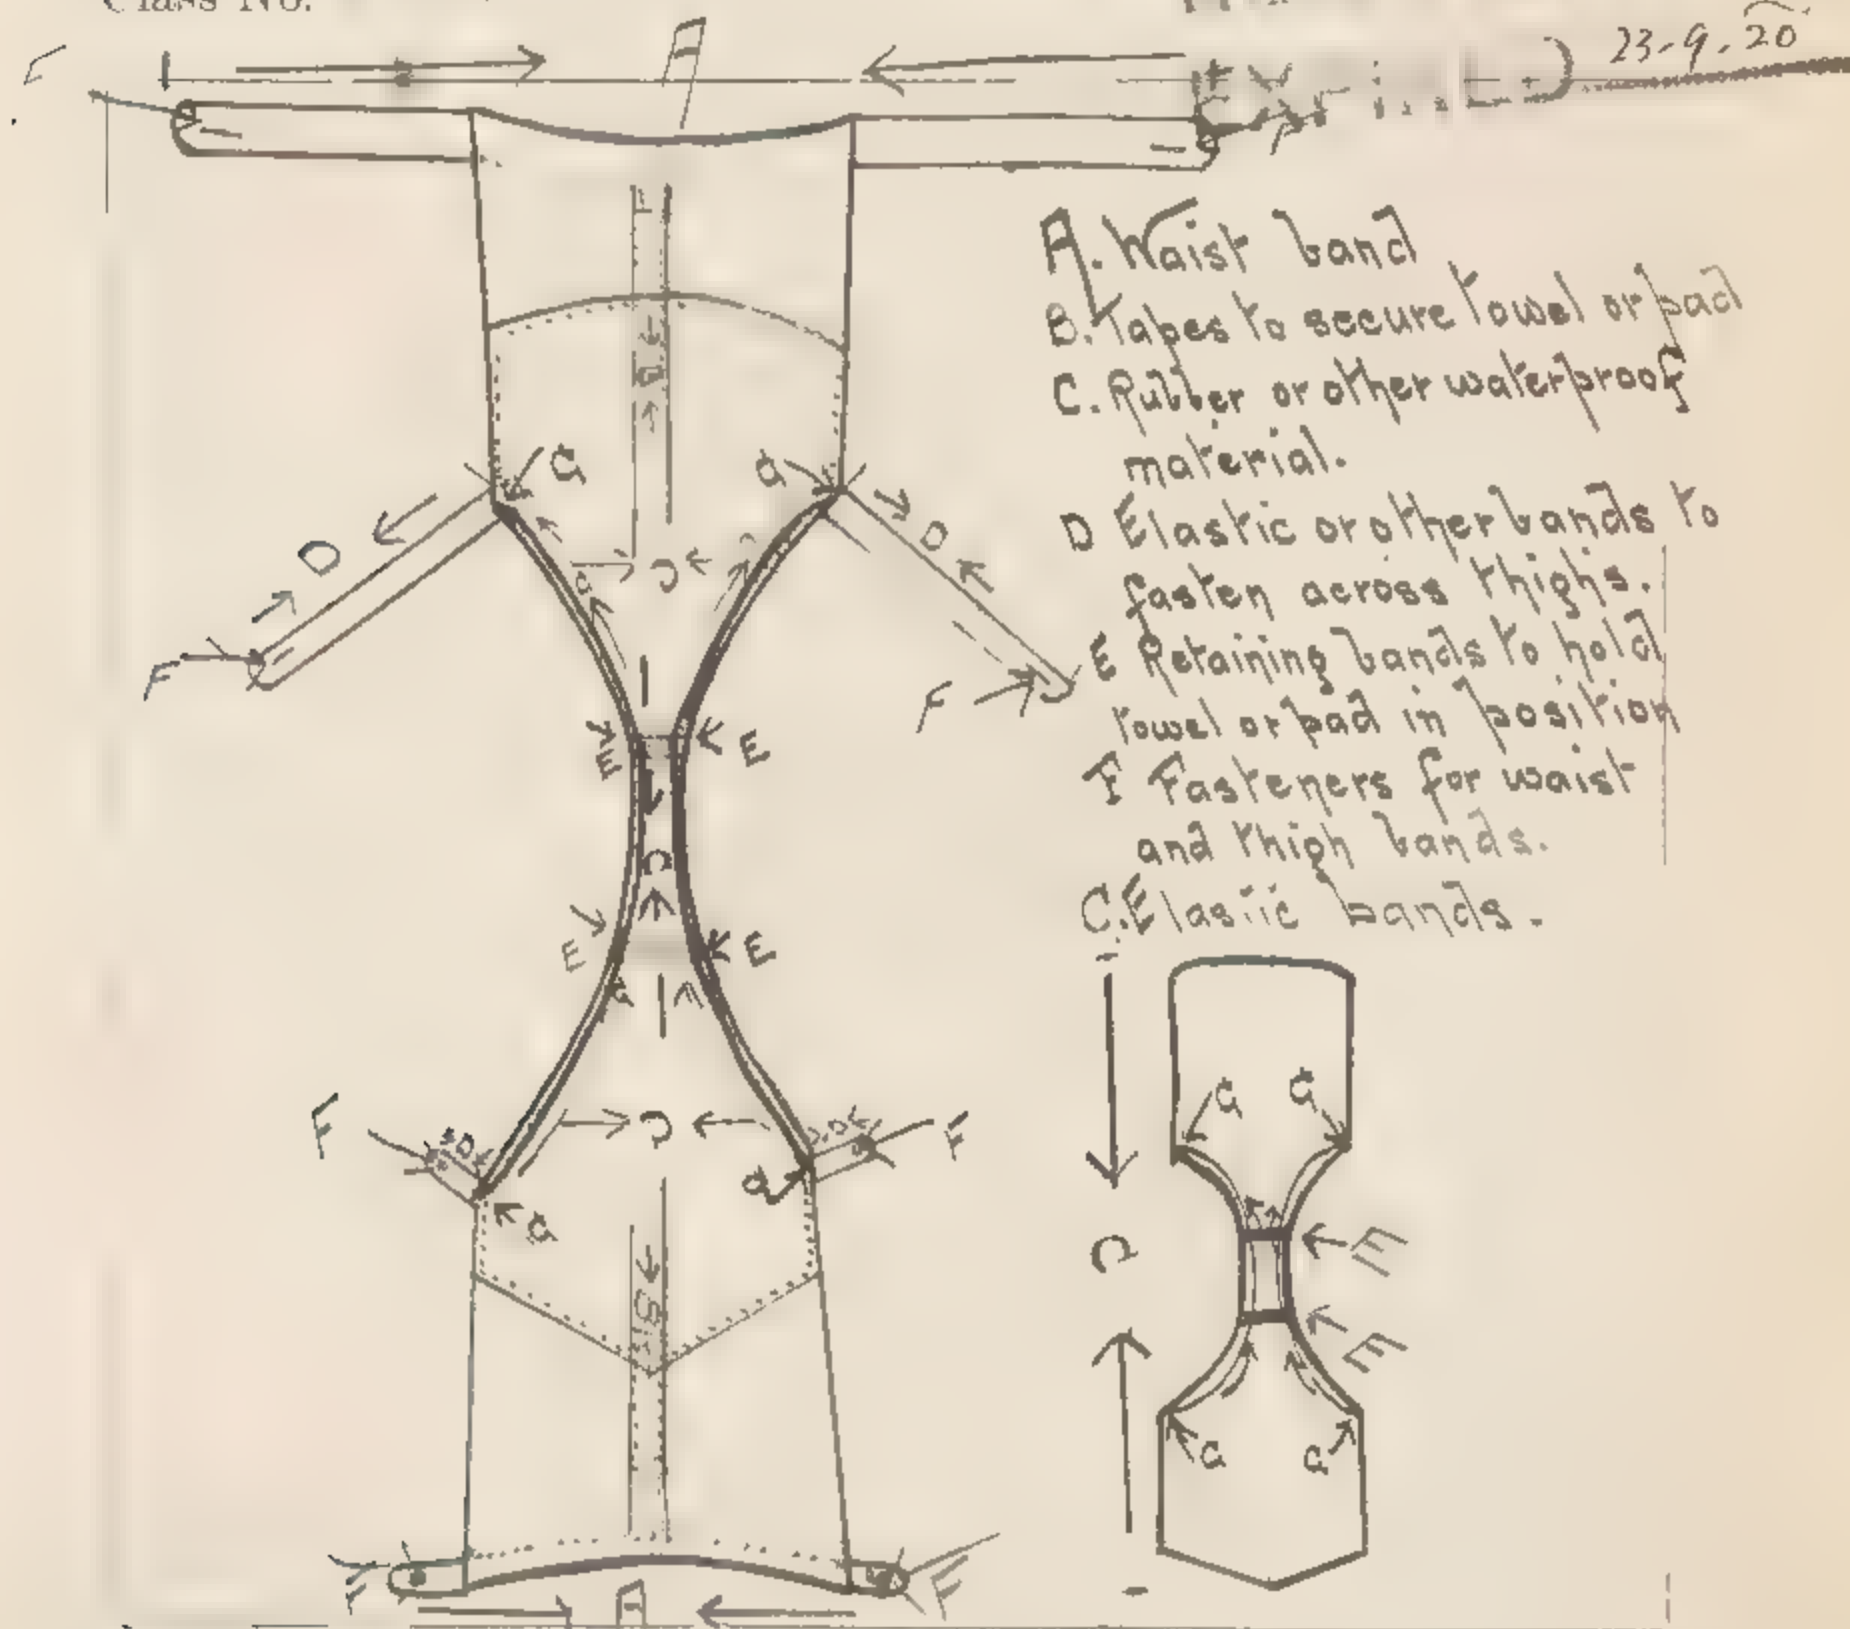 Class No.
23-9-20
A
A. Waist band
B. Tapes to secure towel or pad
C. Rubber or other waterproof
material.
D Elastic or other bands to
fasten across thighs.
E Retaining bands to hold
towel or pad in position
F Fasteners for waist
and thigh bands.
C. Elastic bands.
B
G G
D D
C
F F
E E
C
E E
G
F C F
G
G
B
F A F
G G
C
E
E
G G